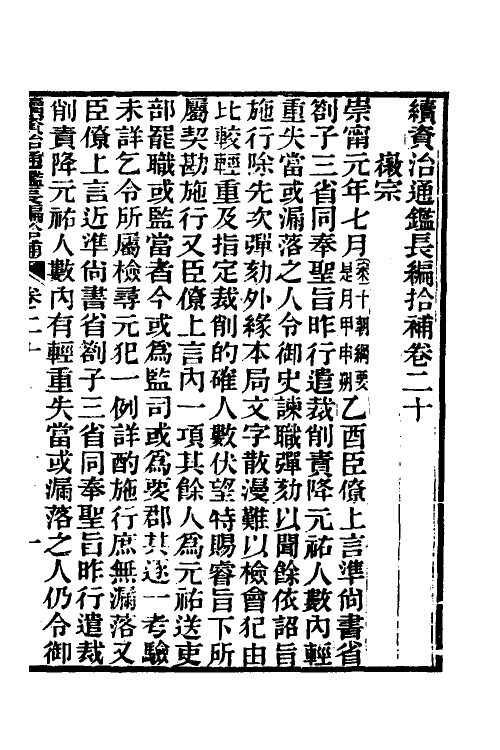 續資治通鑑長編拾補卷二十
徽宗
崇甯元年七月案十朝綱要是月甲申朔乙酉臣僚上言準尙書省
劄子三省同奉聖旨昨行遣裁削責降元祐人數內輕
重失當或漏落之人令御史諫職彈劾以聞餘依詔旨
施行除先次彈劾外緣本局文字散漫難以檢會犯由
比較輕重及指定裁削的確人數伏望特賜睿旨下所
屬契勘施行又臣僚上言內一項其餘人爲元祐送吏
部罷職或監當者今或爲監司或爲要郡其逐一考驗
未詳乞令所屬檢尋元犯一例詳酌施行庶無漏落又
臣僚上言近準尙書省劄子三省同奉聖旨昨行遣裁
削責降元祐人數內有輕重失當或漏落之人仍令御
續資治通鑑長編拾補 卷二十 一